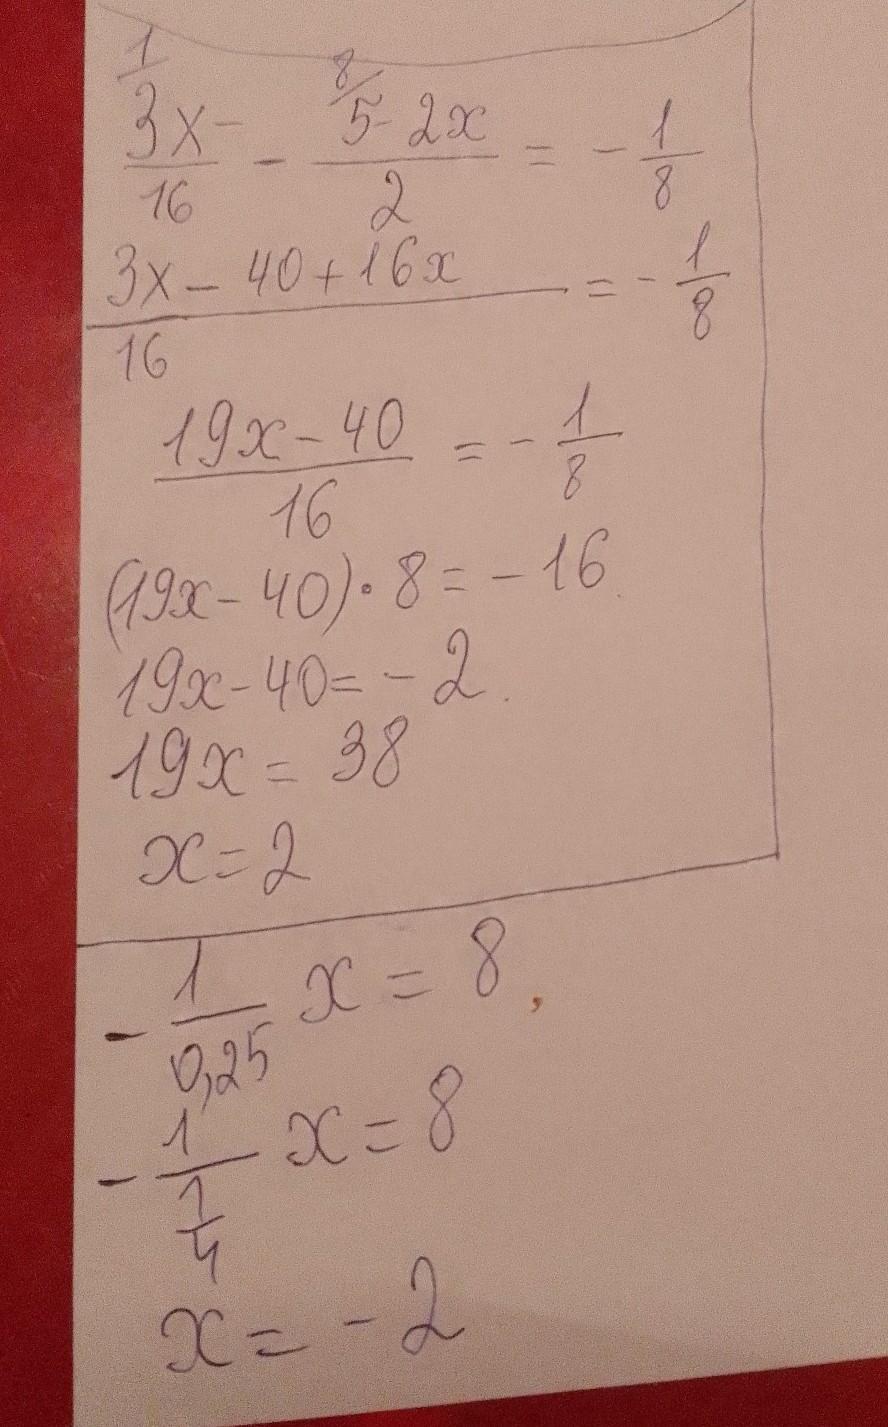 1/ 8/
3x/16 - (5-2x)/2 = -1/8
(3x-40+16x)/16 = -1/8
(19x-40)/16 = -1/8
(19x-40)·8=-16
19x-40=-2.
19x=38
x=2
-1/0,25 x=8,
-1/(1/4) x=8
x=-2